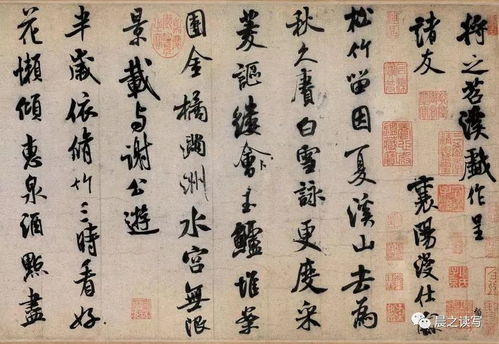 将之苕溪戲作呈
諸友
襄陽漫仕黻
松竹留因夏溪山去為
秋久賡白雪詠更度采
菱謳縷會玉鱸堆案
團金橘滿洲水宮無限
景載与謝公遊
半歲依脩竹三時看好
花懶傾惠泉酒點盡
晨之读写